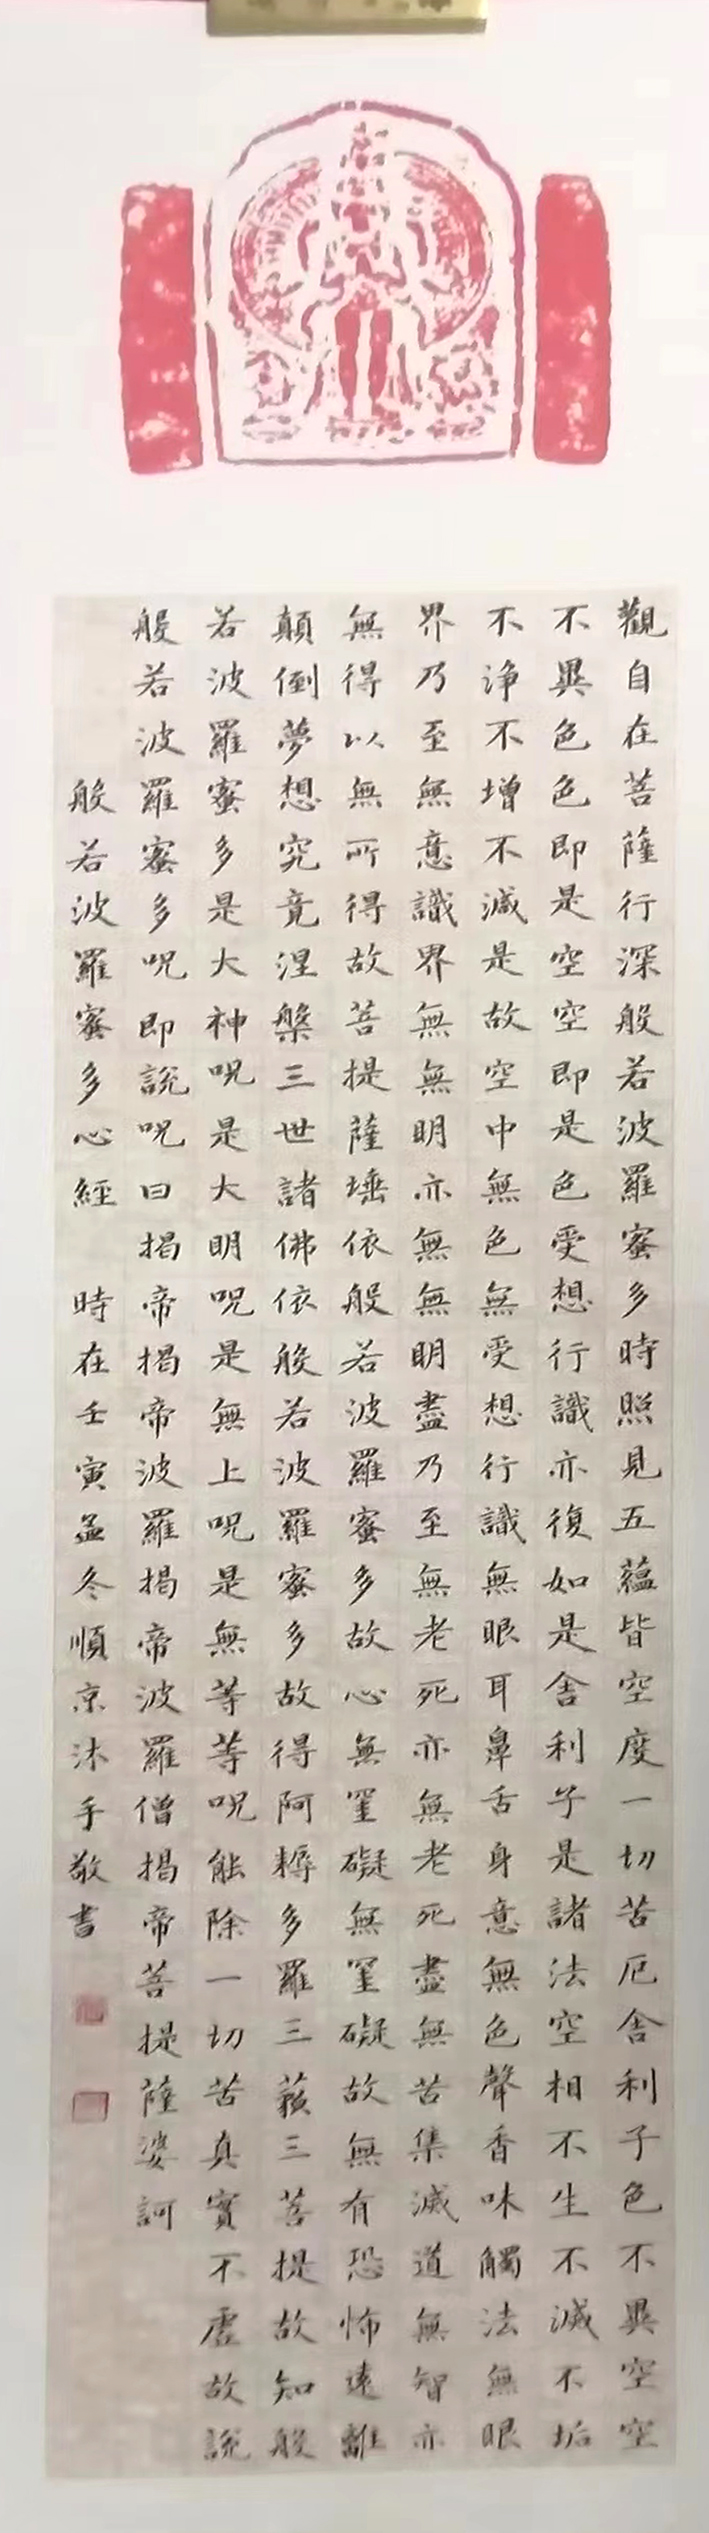 觀自在菩薩行深般若波羅蜜多時照見五蘊皆空度一切苦厄舍利子色不異空空
不異色色即是空空即是色受想行識亦復如是舍利子是諸法空相不生不滅不垢
不淨不增不減是故空中無色無受想行識無眼耳鼻舌身意無色聲香味觸法無眼
界乃至無意識界無無明亦無無明盡乃至無老死亦無老死盡無苦集滅道無智亦
無得以無所得故菩提薩埵依般若波羅蜜多故心無罣礙無罣礙故無有恐怖遠離
顛倒夢想究竟涅槃三世諸佛依般若波羅蜜多故得阿耨多羅三藐三菩提故知般
若波羅蜜多是大神呪是大明呪是無上呪是無等等呪能除一切苦真實不虛故說
般若波羅蜜多呪即說呪曰揭帝揭帝波羅揭帝波羅僧揭帝菩提薩婆訶
般若波羅蜜多心經 時在壬寅孟冬順京沐手敬書